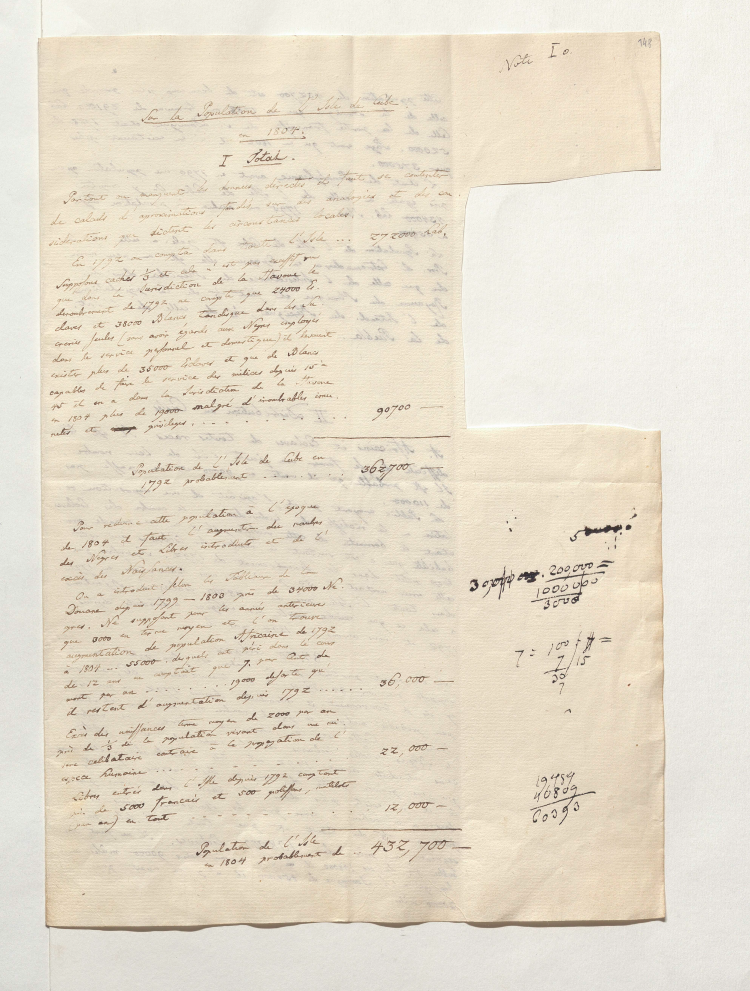 148
Note I o
Sur la Population de l'Isle de Cube
en 1804.
I Total.
Partout où manquent les données directes il faut se contenter
de calculs d'aproximations fondés sur des analogies et des con
sidérations que dictent les circonstances locales
En 1792 on compta dans toute l'Isle ... 272000 hab.
Supposons cachés 1/3 et cela n'est pas
que dans la Jurisdiction de la Havane le
denombrement de 1792 ne compte que 24000 Es
claves et 38000 Blancs tandisque dans les Su
creries seules (sans avoir égards aux Negres employés
dans le service personel et domestique) il devoient
exister plus de 35000 Esclaves et que de Blancs
capables de faire le service des milices depuis 15 à
45 il en a dans la Jurisdiction de la Havane
en 1804 plus de 19000 malgré d'inombrables immu
nités et privileges. . . . . . . . . 90700 —
Population de l'Isle de Cube en
1792 probablement . . . . . . 362700 —
Pour reduire cette population à l'époque
de 1804 il faut l'augmenter du nombre
des Negres et Libres introduits et de l'
excès des Naissances.
On a introduit selon les Tableaux de la
Douane depuis 1799 — 1803 près de 34000 Ne
gres. Ne supposant pour les années antérieures
que 3000 en terme moyen et l'on trouve
augmentation de population Africaine de 1792
à 1804 ... 55000, desquels ont péri dans le cours
de 12 ans en comptant que 7 par Cent de
mort par an . . . . . . . 19000 desorte qu'
il restent d'augmentation depuis 1792 ...... 36,000 —
Excès des naissances terme moyen de 2000 par an
près de 1/3 de la population vivant dans un cé
libat contraire à la propagation de l'
espece humaine . . . . . . . 22,000 —
Libres entrés dans l'Isle depuis 1792 comptant
près de 5000 francais et 500
par an) en tout . . . . . . . 12,000 —
Population de l'Isle
en 1804 probablement de .. 432,700 —
200000 =
1000000
3000
7 = 100
7/15
30
7
19484
40809
60393